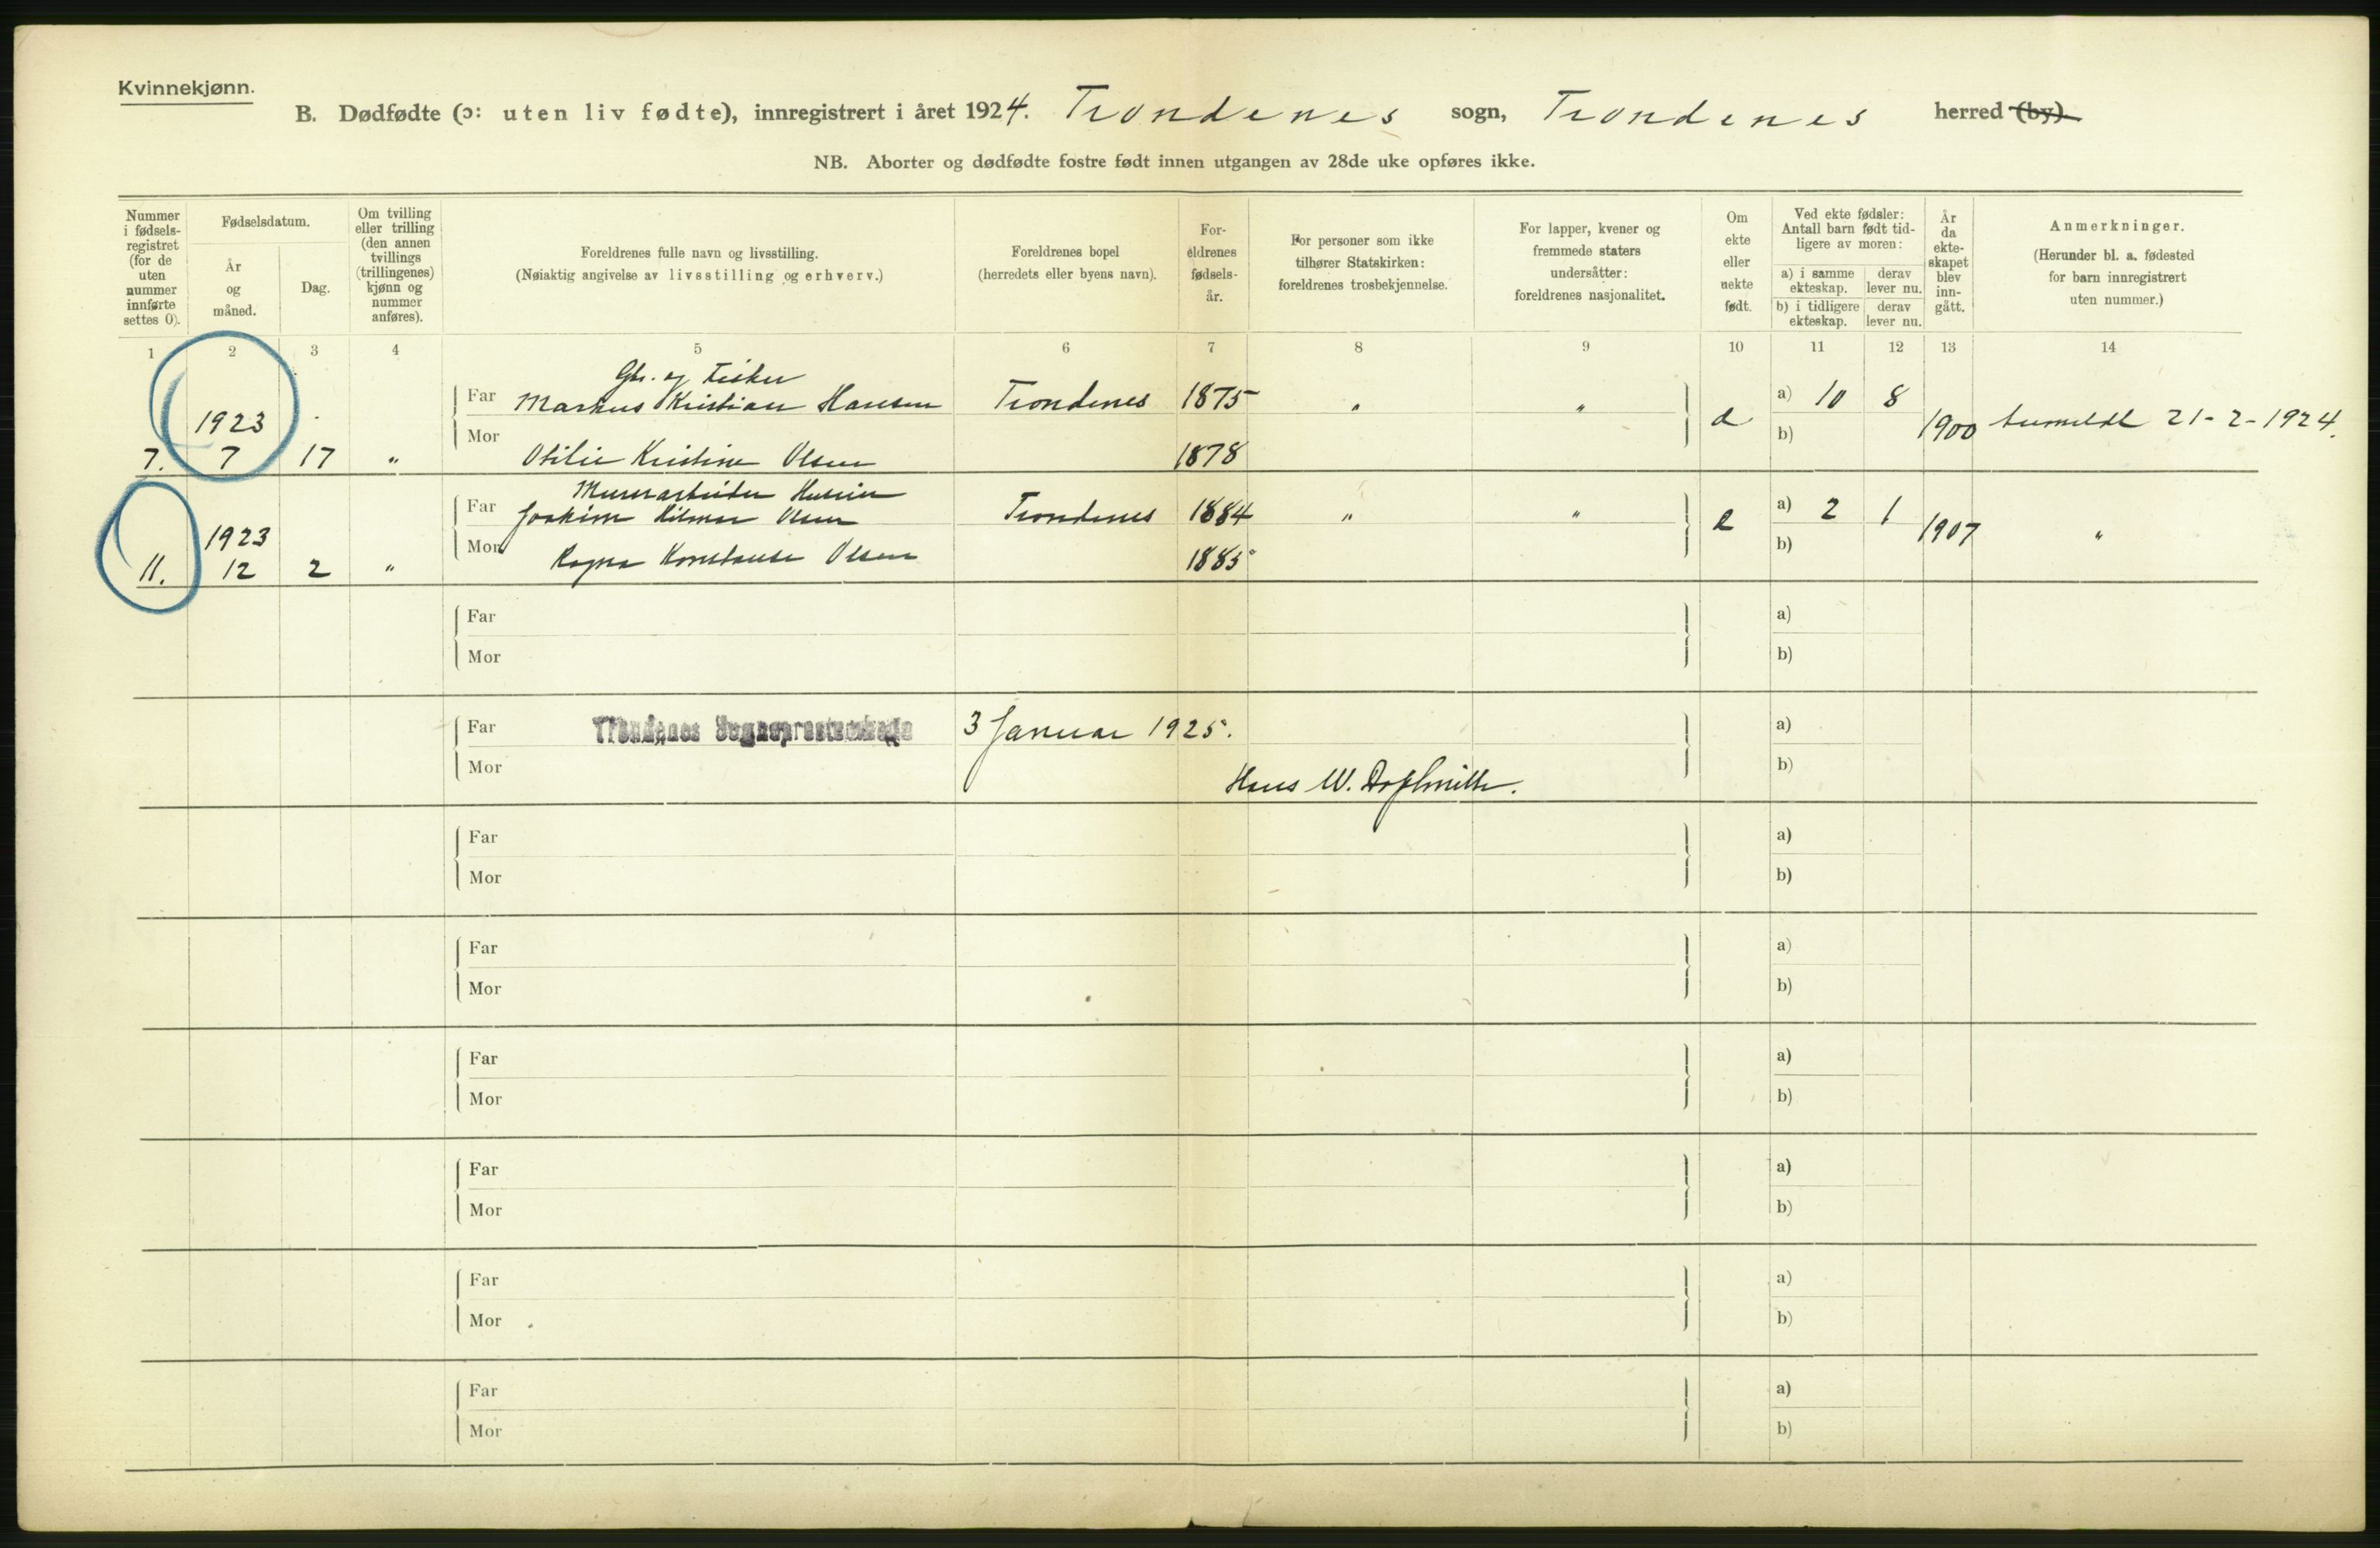 Kvinnekjønn.
B. Dødfødte (ɔ: uten liv fødte), innregistrert i året 1924. Trondenes sogn, Trondenes herred (by).
NB. Aborter og dødfødte fostre født innen utgangen av 28de uke opføres ikke.
Nummer i fødsels-registret (for de uten nummer innførte settes 0).
Fødselsdatum.
År og måned.
Dag.
Om tvilling eller trilling (den annen tvillings (trillingenes) kjønn og nummer anføres).
Foreldrenes fulle navn og livsstilling.
(Nøiaktig angivelse av livsstilling og erhverv.)
Foreldrenes bopel
(herredets eller byens navn).
For-eldrenes fødsels-år.
For personer som ikke tilhører Statskirken: foreldrenes trosbekjennelse.
For lapper, kvener og fremmede staters undersåtter: foreldrenes nasjonalitet.
Om ekte eller uekte født.
Ved ekte fødsler: Antall barn født tid-ligere av moren:
a) i samme ekteskap.
derav lever nu.
b) i tidligere ekteskap.
derav lever nu.
År da ekte-skapet blev inn-gått.
Anmerkninger.
(Herunder bl. a. fødested for barn innregistrert uten nummer.)
1 2 3 4 5 6 7 8 9 10 11 12 13 14
Gbr. og Fisker
Far Markus Kristian Hansen Trondenes 1875 " " a) 10 8
1923
Mor b) 1900 21-2-1924.
7. 7 17 " Otilie Kristine Olsen 1878
Far Joakim Hilmar Olsen Trondenes 1884 " " e a) 2 1
1923 1907 "
Mor b)
11. 12 2 " Ragna Konstanse Olsen 1885
Far a)
Mor b)
Far Trondenes Sogneprestembede 3 Januar 1925. a)
Mor b)
Hans W.
Far a)
Mor b)
Far a)
Mor b)
Far a)
Mor b)
Far a)
Mor b)
Far a)
Mor b)
Far a)
Mor b)